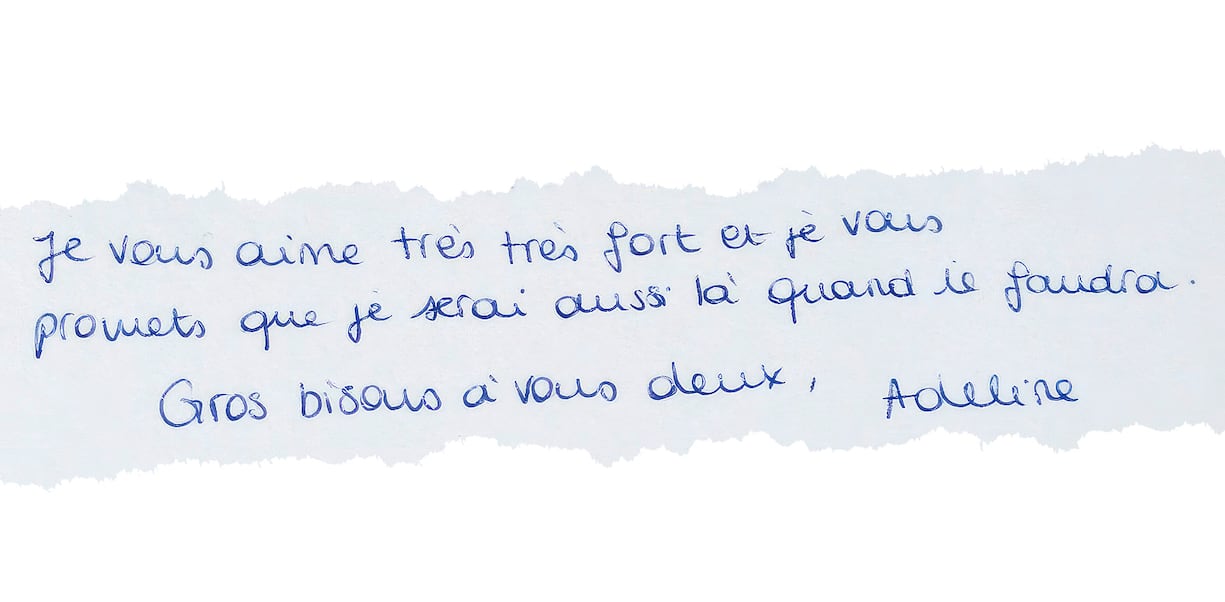 Je vous aime très très fort et je vous
promets que je serai aussi là quand il faudra.
Gros bisous à vous deux, Adeline